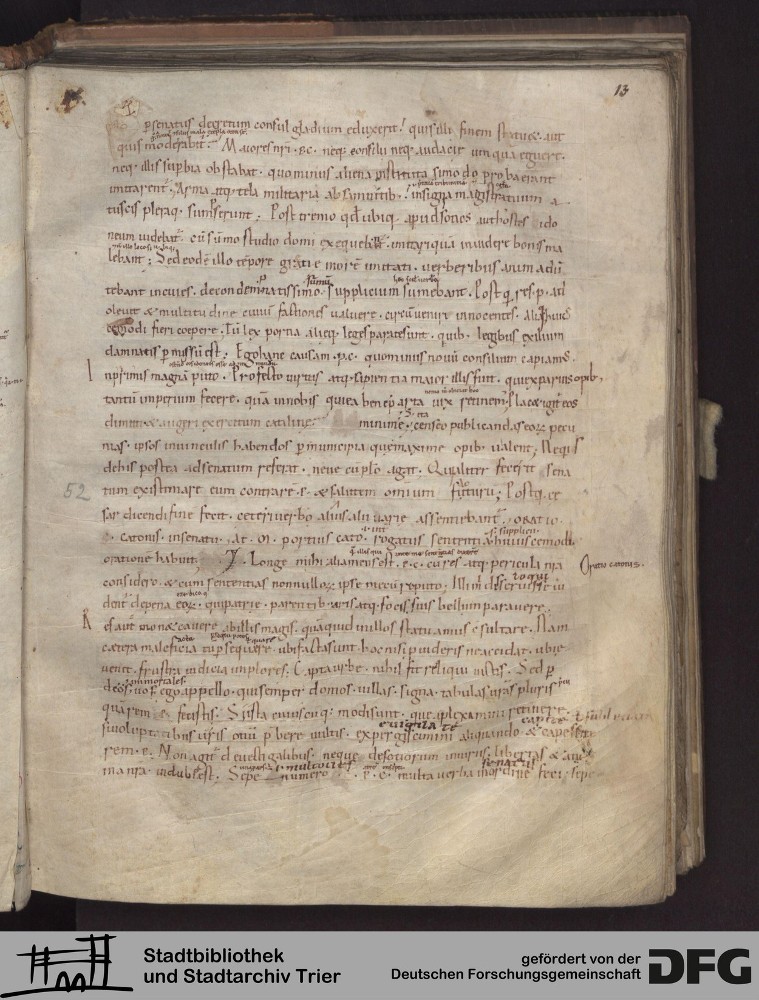 13
p senatus decretum consul gladium eduxerit! quis illi finem statuet. aut
quis moderabit. Maiores nri. p.c. neq; consilii neq; audacie umquā eguere.
neq; illis supbia obstabat. quominus aliena instituta si modo proba erant
imitarent. Arma atq; tela militaria ab samnitib; insignia magistratuum a
tuscis pleraq; sumserunt; Postremo qd ubiq; apud socios aut hostes ido
neum uidebat. cū sūmo studio domi exequebant. imitari quā inuidere bonis ma
lebant; Sed eodē illo tēpore grecie morē imitati. uerberibus animaduer
tebant in ciues. de condemnatis summo supplicium sumebant. Postq̄ res. p. ad
oleuit & multitudine ciuiū factiones ualuere. circūuenire innocentes. alia huius
modi fieri coepere. Tū lex porcia alieq; leges parate sunt. quib; legibus exilium
damnatis pmissū est; Ego hanc causam. p.c. quominus nouū consilium capiamus.
inprimis magnā puto. Profecto uirtus atq; sapientia maior illis fuit. qui ex paruis opib;
tantū imperium fecere. quā in nobis qui ea bene parta uix retinem; Placet igit eos
dimitti & augeri exercitum catiline? minime. s; ita censeo publicandas eorum pecu
nias. ipsos in uinculis habendos p municipia que maxime opib; ualent; Neq; s
de his postea ad senatum referat. neue cū plo agat. Qui aliter fecerit sena
52
tum existimare eum contra rē. p. & salutem omium facturū; Postq̄ ce
sar dicendi fine fecit. ceteri uerbo alius alii uarie assentiebant. oratio
catonis. in senatu. At. m. portius cato. rogatus sententiā huiuscemodi
oratione habuit; Longe mihi alia mens est. p.c. cū res atq; pericula nra
Oratio catonis.
considero. & cum sententias nonnullorum ipse mecū reputo. Illi m̄ disseruisse ui
dent de pena eorum. qui patrie. parentib; aris atq; focis suis bellum parauere.
Res aut monet cauere ab illis magis. quā quid in illos statuamus cōsultare. Nam
cetera maleficia tū psequere. ubi facta sunt. hoc nisi prouideris ne accidat. ubi e
uenit. frustra iudicia implores. Capta urbe. nihil fit reliqui uictis. Sed p
deos inmortales uos ego appello. qui semper domos. uillas. signa. tabulas uras pluris
quā rem p. fecistis. Si ista cuiuscūq; modi sunt. que amplexamini retinere.
si uoluptatibus uris otiū p bere uultis. expergiscimini aliquando & capessite
rem. p. Non agit de uectigalibus. neque de sociorum iniuriis. libertas & anima
nra in dubio est. Sepe numero. p.c. multa uerba in hoc ordine feci. sepe
Stadtbibliothek
und Stadtarchiv Trier
gefördert von der
Deutschen Forschungsgemeinschaft
DFG